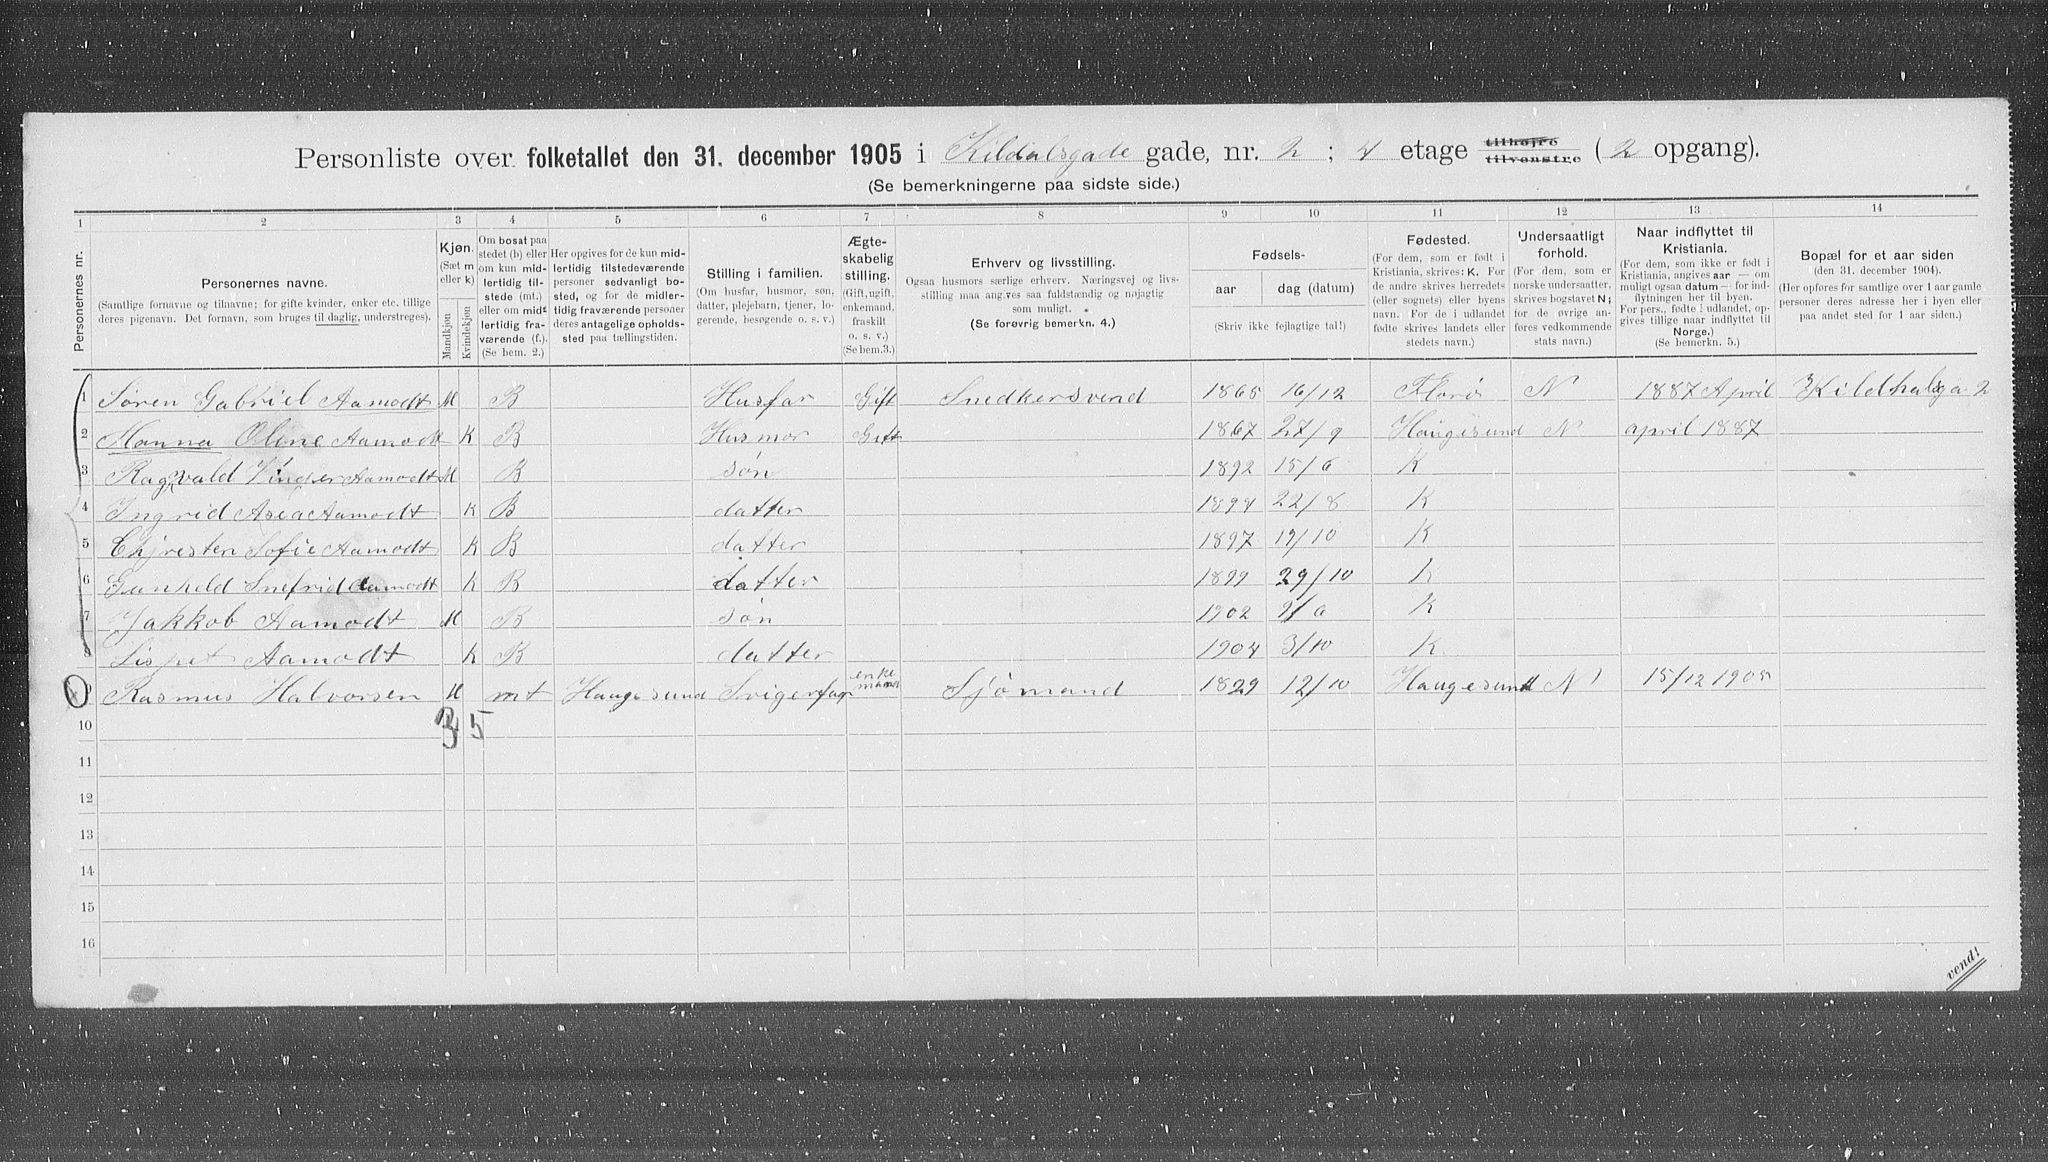 Personliste over folketallet den 31. december 1905 i Kildalsgade gade, nr. 2 ; 4 etage tilhøjre tilvenstre ( 2 opgang).
(Se bemerkningerne paa sidste side.)
1 2 3 4 5 6 7 8 9 10 11 12 13 14
Personernes nr.
Personernes navne.
(Samtlige fornavne og tilnavne; for gifte kvinder, enker etc. tillige
deres pigenavn. Det fornavn, som bruges til daglig, understreges).
Kjøn.
(Sæt m
eller k)
Mandkjøn
Kvindekjøn
Om bosat paa
stedet (b) eller
om kun mid-
lertidig til-
stede (mt.)
eller om mid-
lertidig fra-
værende (f.).
(Se bem. 2.)
Her opgives for de kun mid-
lertidig tilstedeværende
personer sedvanligt bo-
sted, og for de midler-
tidig fraværende personer
deres antagelige opholds-
sted paa tællingstiden.
Stilling i familien.
(Om husfar, husmor, søn,
datter, plejebarn, tjener, lo-
gerende, besøgende o. s. v.)
Ægte-
skabelig
stilling.
(Gift, ugift,
enkemand,
fraskilt
o. s. v.)
(Se bem.3.)
Erhverv og livsstilling.
Ogsaa husmors særlige erhverv. Næringsvej og livs-
stilling maa angives saa fuldstændig og nøjagtig
som muligt.
(Se forøvrig bemerkn. 4.)
Fødsels-
aar dag (datum)
(Skriv ikke fejlagtige tal!)
Fødested.
(For dem, som er født i
Kristiania, skrives: K. For
de andre skrives herredets
(eller sognets) eller byens
navn. For de i udlandet
fødte skrives landets eller
stedets navn.)
Undersaatligt
forhold.
(For dem, som er
norske undersaatter,
skrives bogstavet N;
for de øvrige an-
føres vedkommende
stats navn.)
Naar indflyttet til
Kristiania.
(For dem, som ikke er født i
Kristiania, angives aar — om
muligt ogsaa datum — for ind-
flytningen her til byen.
For pers., fødte i udlandet, op-
gives tillige naar indflyttet til
Norge.)
(Se bemerkn. 5.)
Bopæl for et aar siden
(den 31. december 1904).
(Her opføres for samtlige over 1 aar gamle
personer deres adresse her i byen eller
paa andet sted for 1 aar siden.)
1 Søren Gabriel Aamodt M B Husfar Gift Snedkersvend 1865 16/12 Florø N 1887 April Kildhalsga 2
2 Hanna Oline Aamodt K B Husmor Gift 1867 27/9 Haugesund N april 1887
3 Ragnvald Aamodt M B søn 1892 15/6 K
4 Ingrid Asea Aamodt K B datter 1894 22/8 K
5 Chjresten Sofie Aamodt K B datter 1897 19/10 K
6 Gunheld Snefrid Aamodt K B datter 1899 29/10 K
7 Jakkob Aamodt M B søn 1902 K
8 Lispet Aamodt K B datter 1904 3/10 K
9 Rasmus Halvorsen M mt Haugesund Svigerfar enke mand Sjømand 1829 12/10 Haugesund N 15/12 1905
3 5
10
11
12
13
14
15
16
vend!